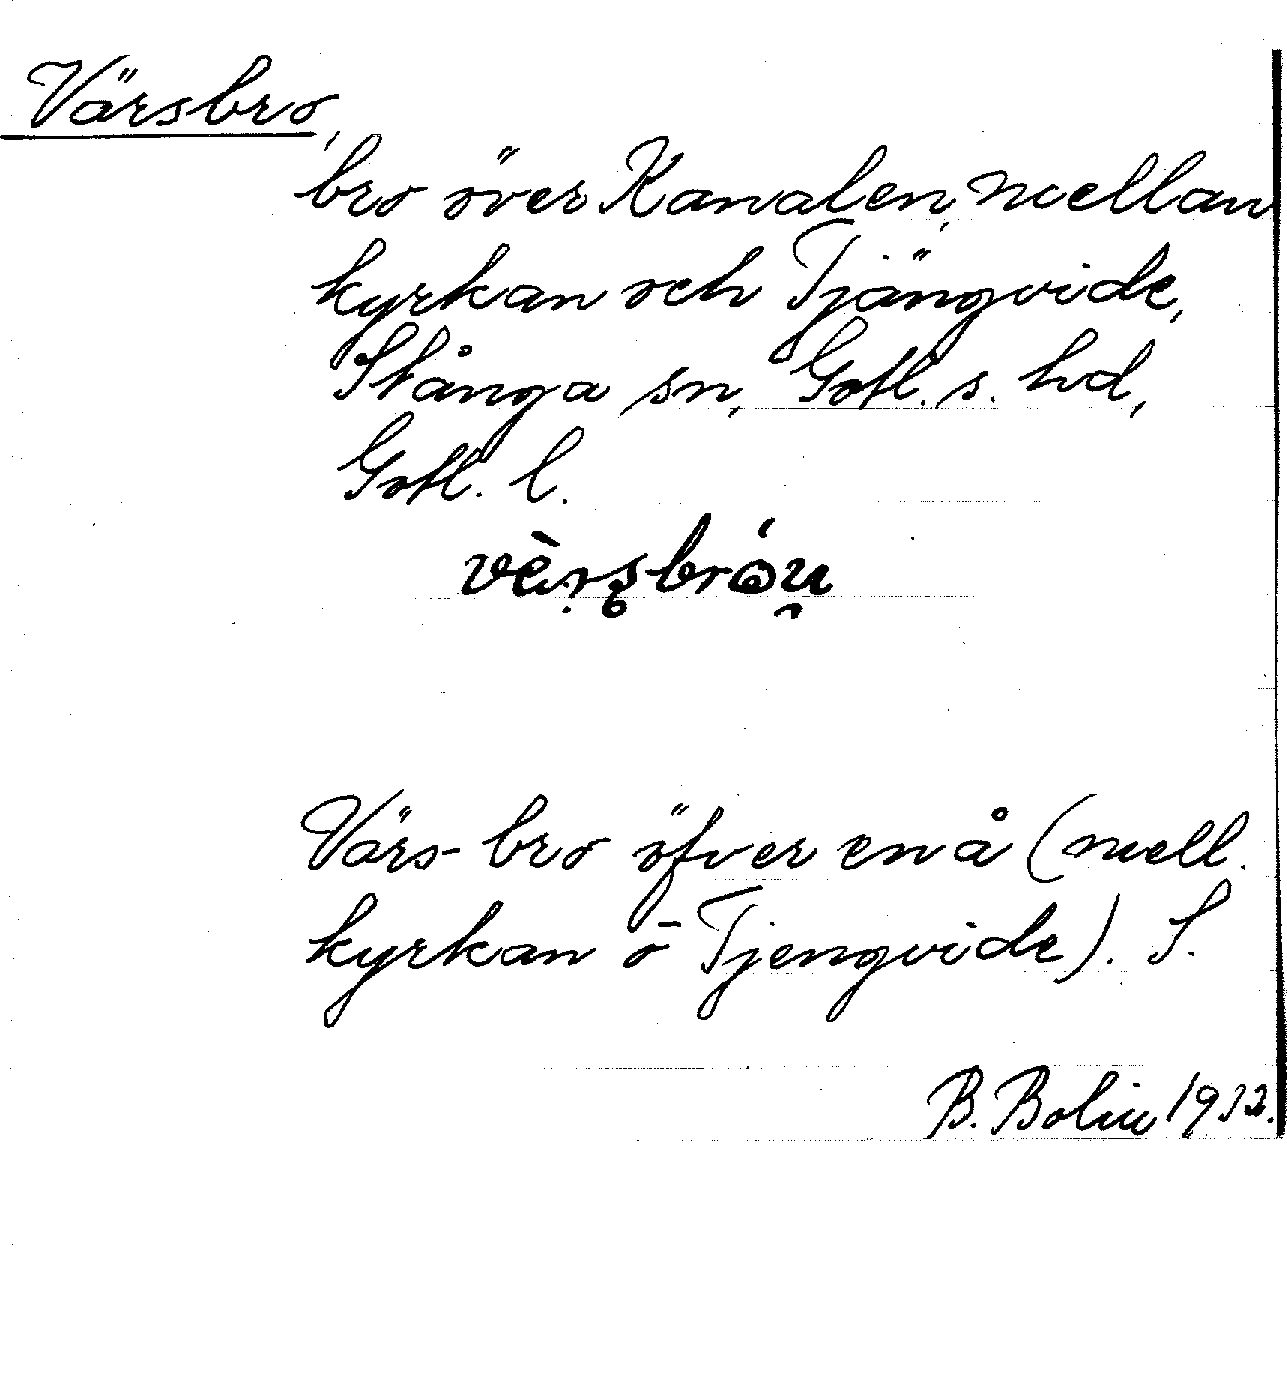 Värsbro,
bro över Kanalen, mellan
kyrkan och Tjängvide,
Stånga sn, Gotl. s. hd,
Gotl. l.
vèrsbróu̯
Värs- bro öfver en å (mell.
kyrkan o Tjengvide). S.
B. Bolin 1932.